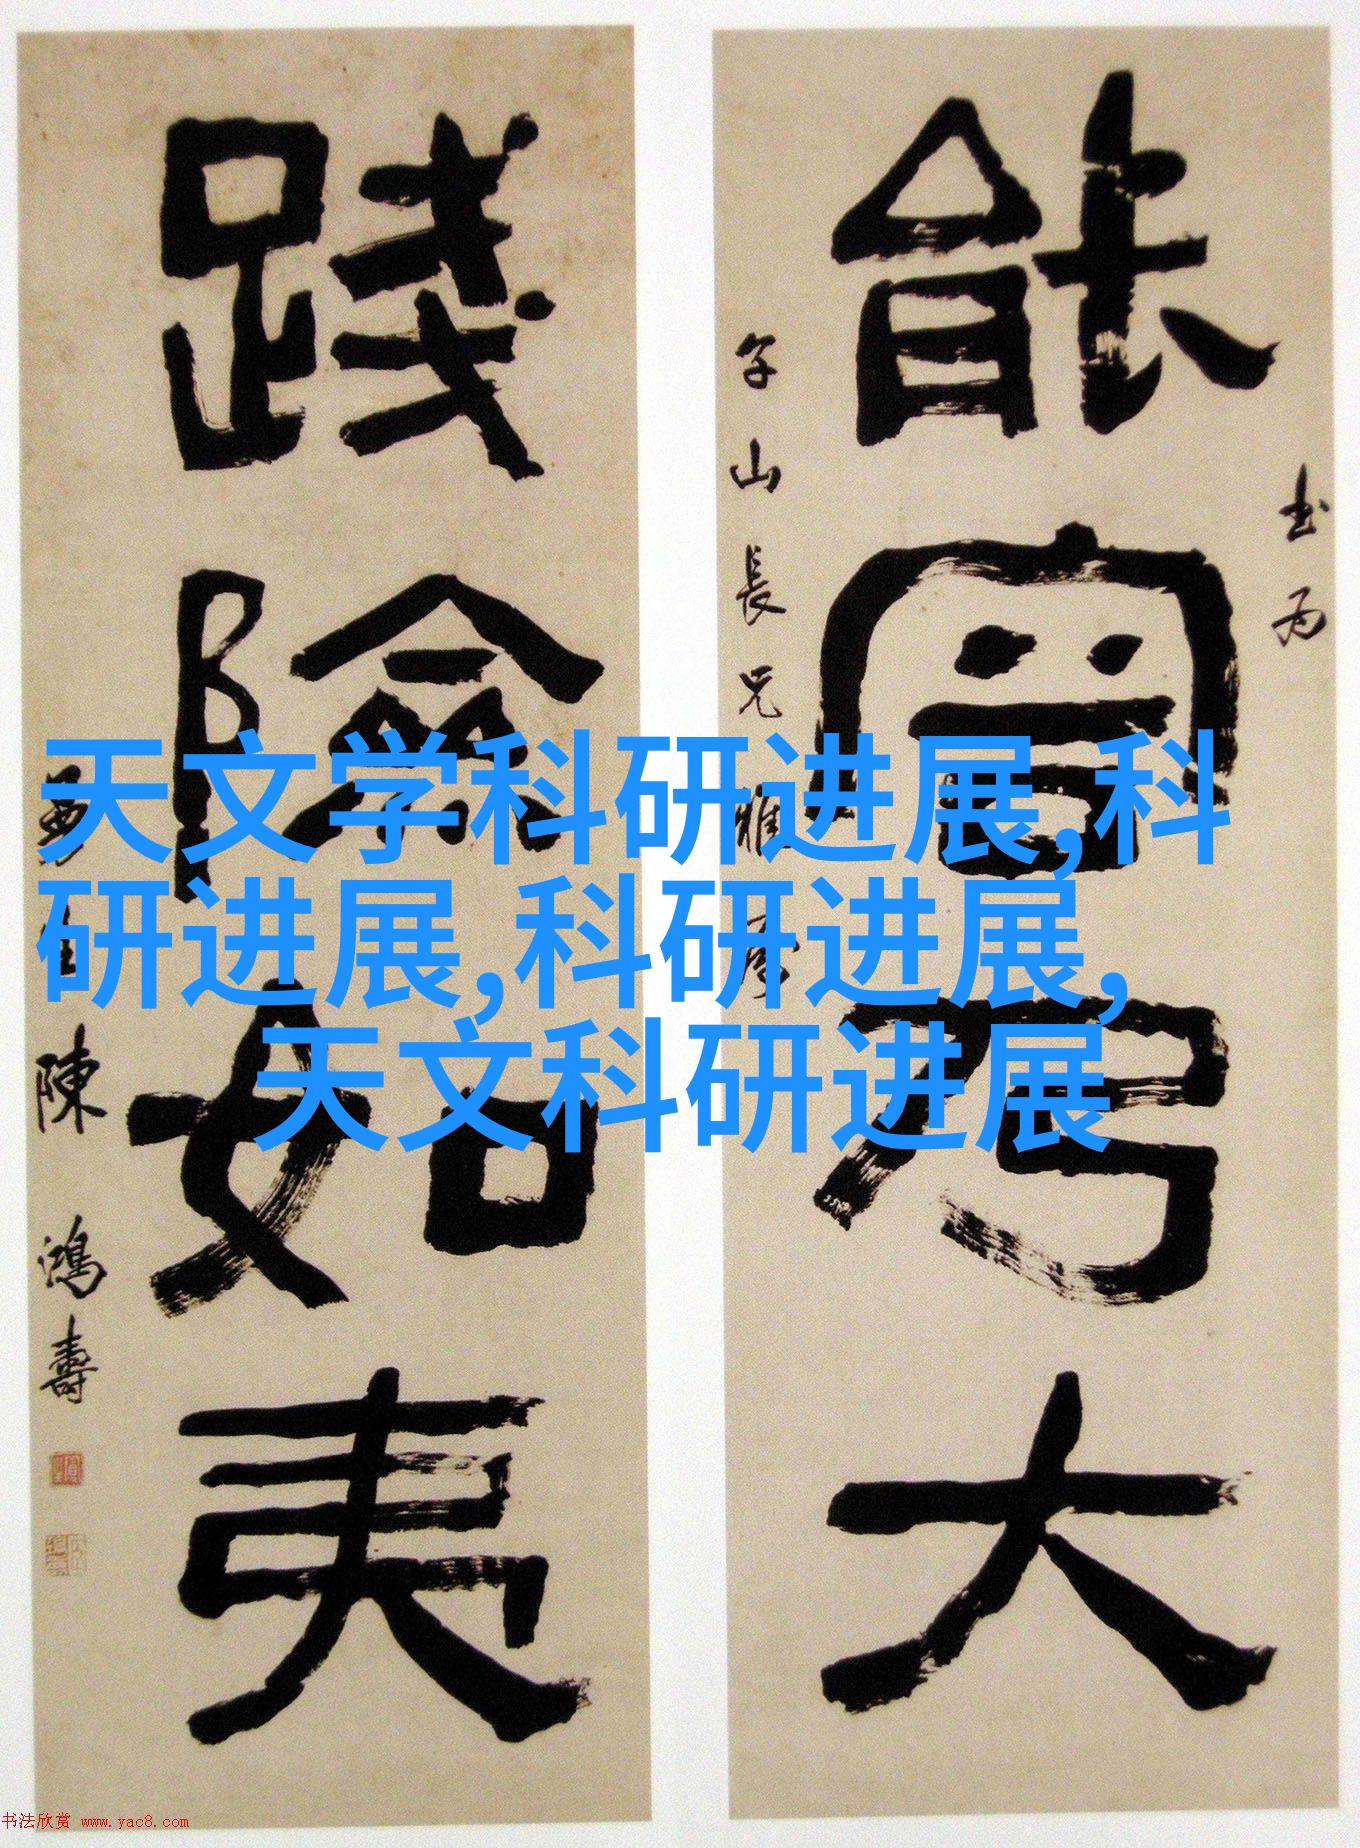 天文学科研进展,科
研进展,科研进展,
天文科研进展
能容乃大
山長兄雅
踐險如夷
陳鴻壽
书法欣赏 www.yac8.com